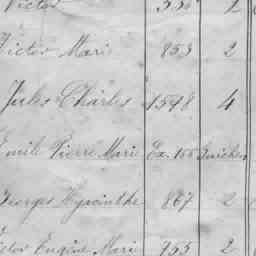 Victor 2
Victor Mari 853 2
Jules Charles 1598 4
Emile Pierre Marie Ex. 155
Georges Hyacinthe 867 2
Victor Eugène Marie 955 2